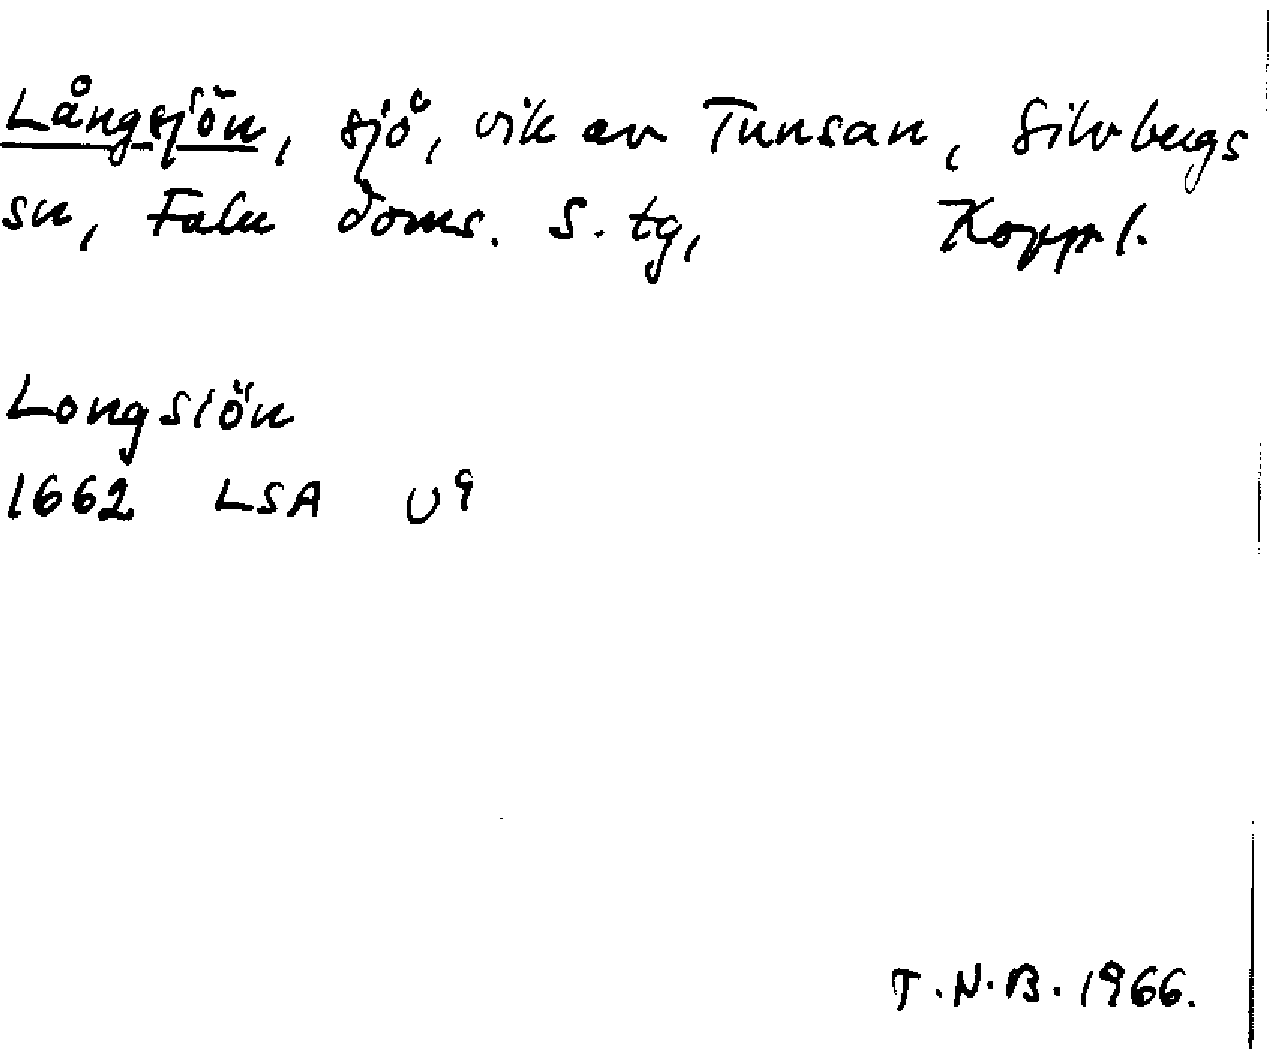 Långsjön, sjö, vik av Tunsan, Silvbergs
sn, Falu doms. S. tg, Koppl.
Longsiön
1662 LSA U9
T.N.B. 1966.